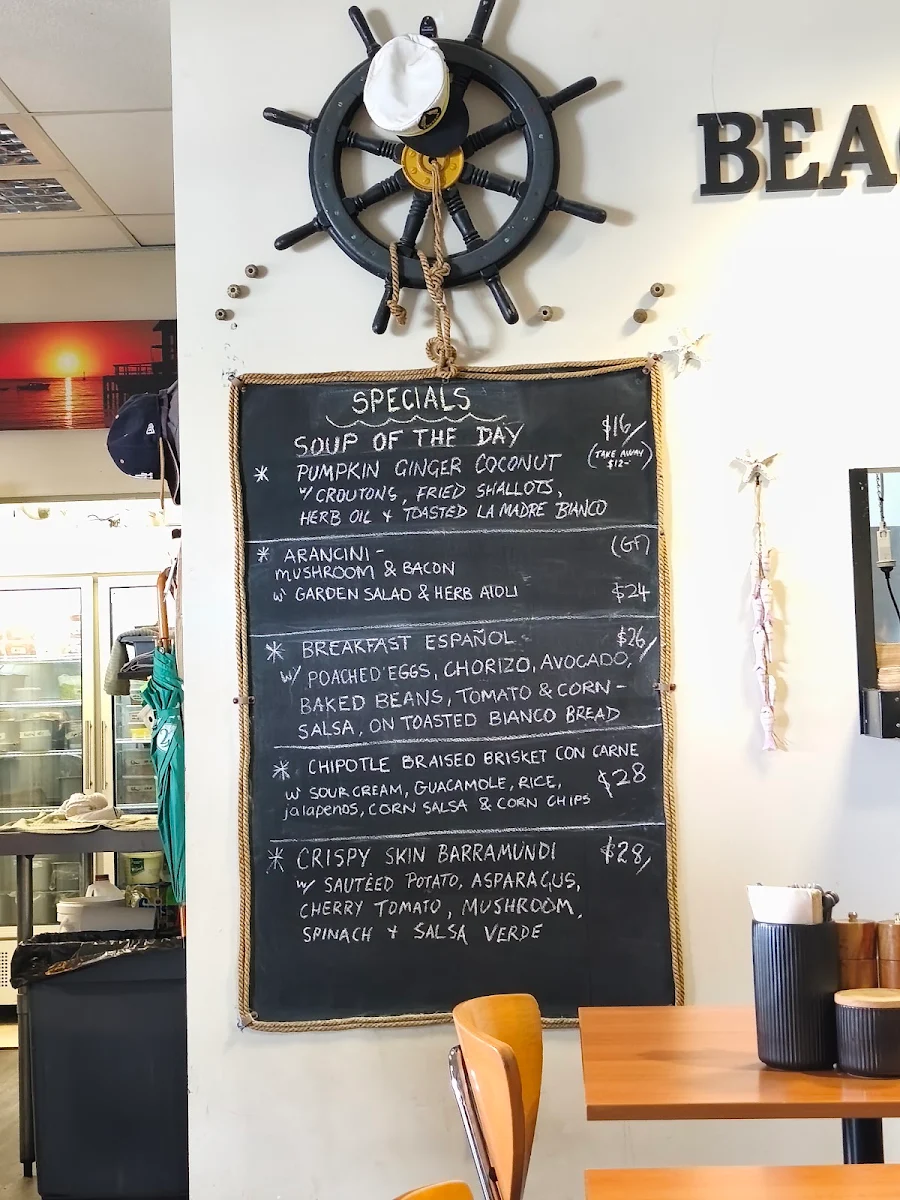 BEA
SPECIALS
SOUP OF THE DAY $16/
* PUMPKIN GINGER COCONUT (TAKE AWAY $12-)
w/ CROUTONS, FRIED SHALLOTS,
HERB OIL + TOASTED LA MADRE BIANCO
* ARANCINI - (GF)
MUSHROOM & BACON
w/ GARDEN SALAD & HERB AIOLI $24
* BREAKFAST ESPAÑOL $26/
w/ POACHED EGGS, CHORIZO, AVOCADO,
BAKED BEANS, TOMATO & CORN-
SALSA, ON TOASTED BIANCO BREAD
* CHIPOTLE BRAISED BRISKET CON CARNE
w/ SOUR CREAM, GUACAMOLE, RICE, $28
jalapenos, CORN SALSA & CORN CHIPS
* CRISPY SKIN BARRAMUNDI $28/
w/ SAUTÉED POTATO, ASPARAGUS,
CHERRY TOMATO, MUSHROOM,
SPINACH + SALSA VERDE